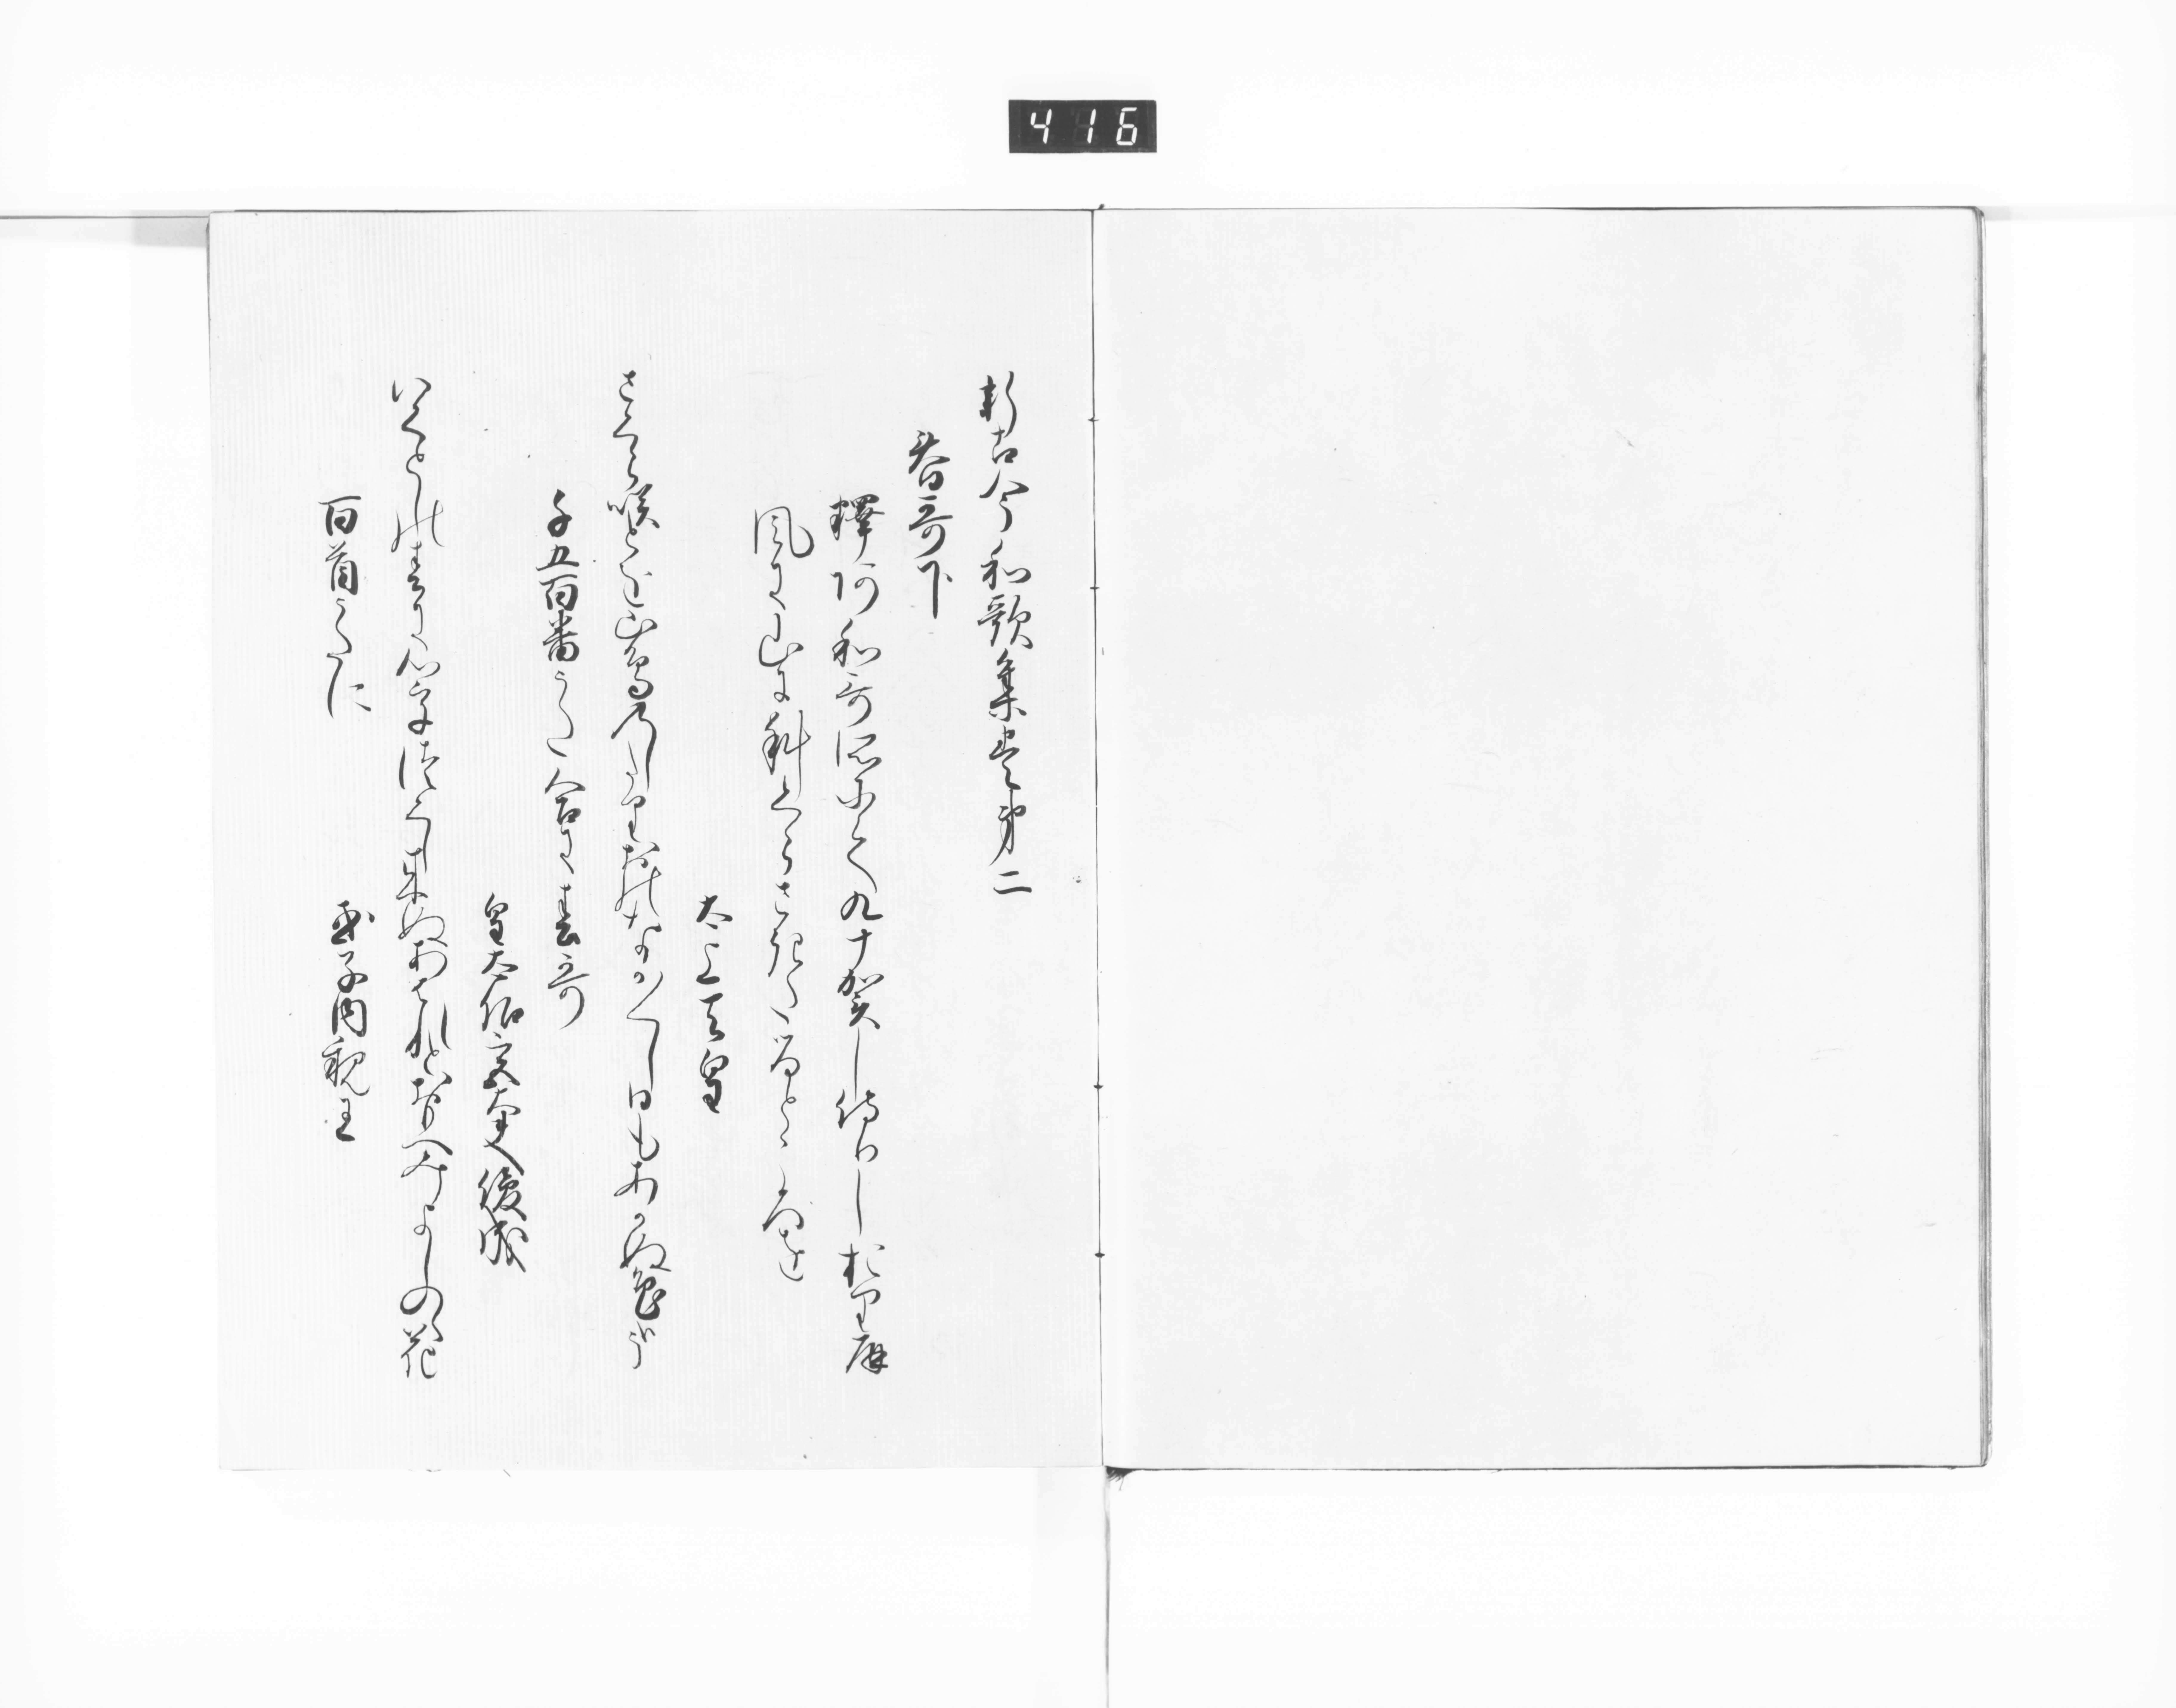 416
新古今和歌集巻第二
春哥下
釋阿和哥所にて九十賀し侍りしおり屏
風に山に櫻さきたるところを
太上天皇
さくら咲とを山鳥のしたりおのなか〱し日もあかぬ色哉
千五百番うた合に春哥
皇太后宮大夫俊成
いくとせの春に心をつくし来ぬあはれとおもへみよしのゝ花
百首うたに
式子内親王